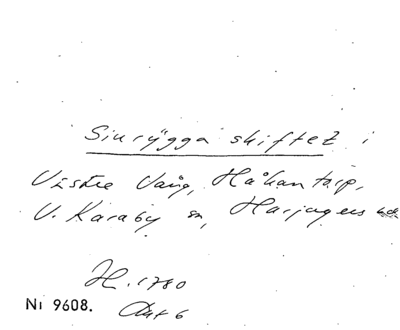 Sinrygga skiftet i
Västra Vång, Håkantorp,
V. Karaby sn, Harjagers hd.
H. 1780
Nr 9608. Akt 6